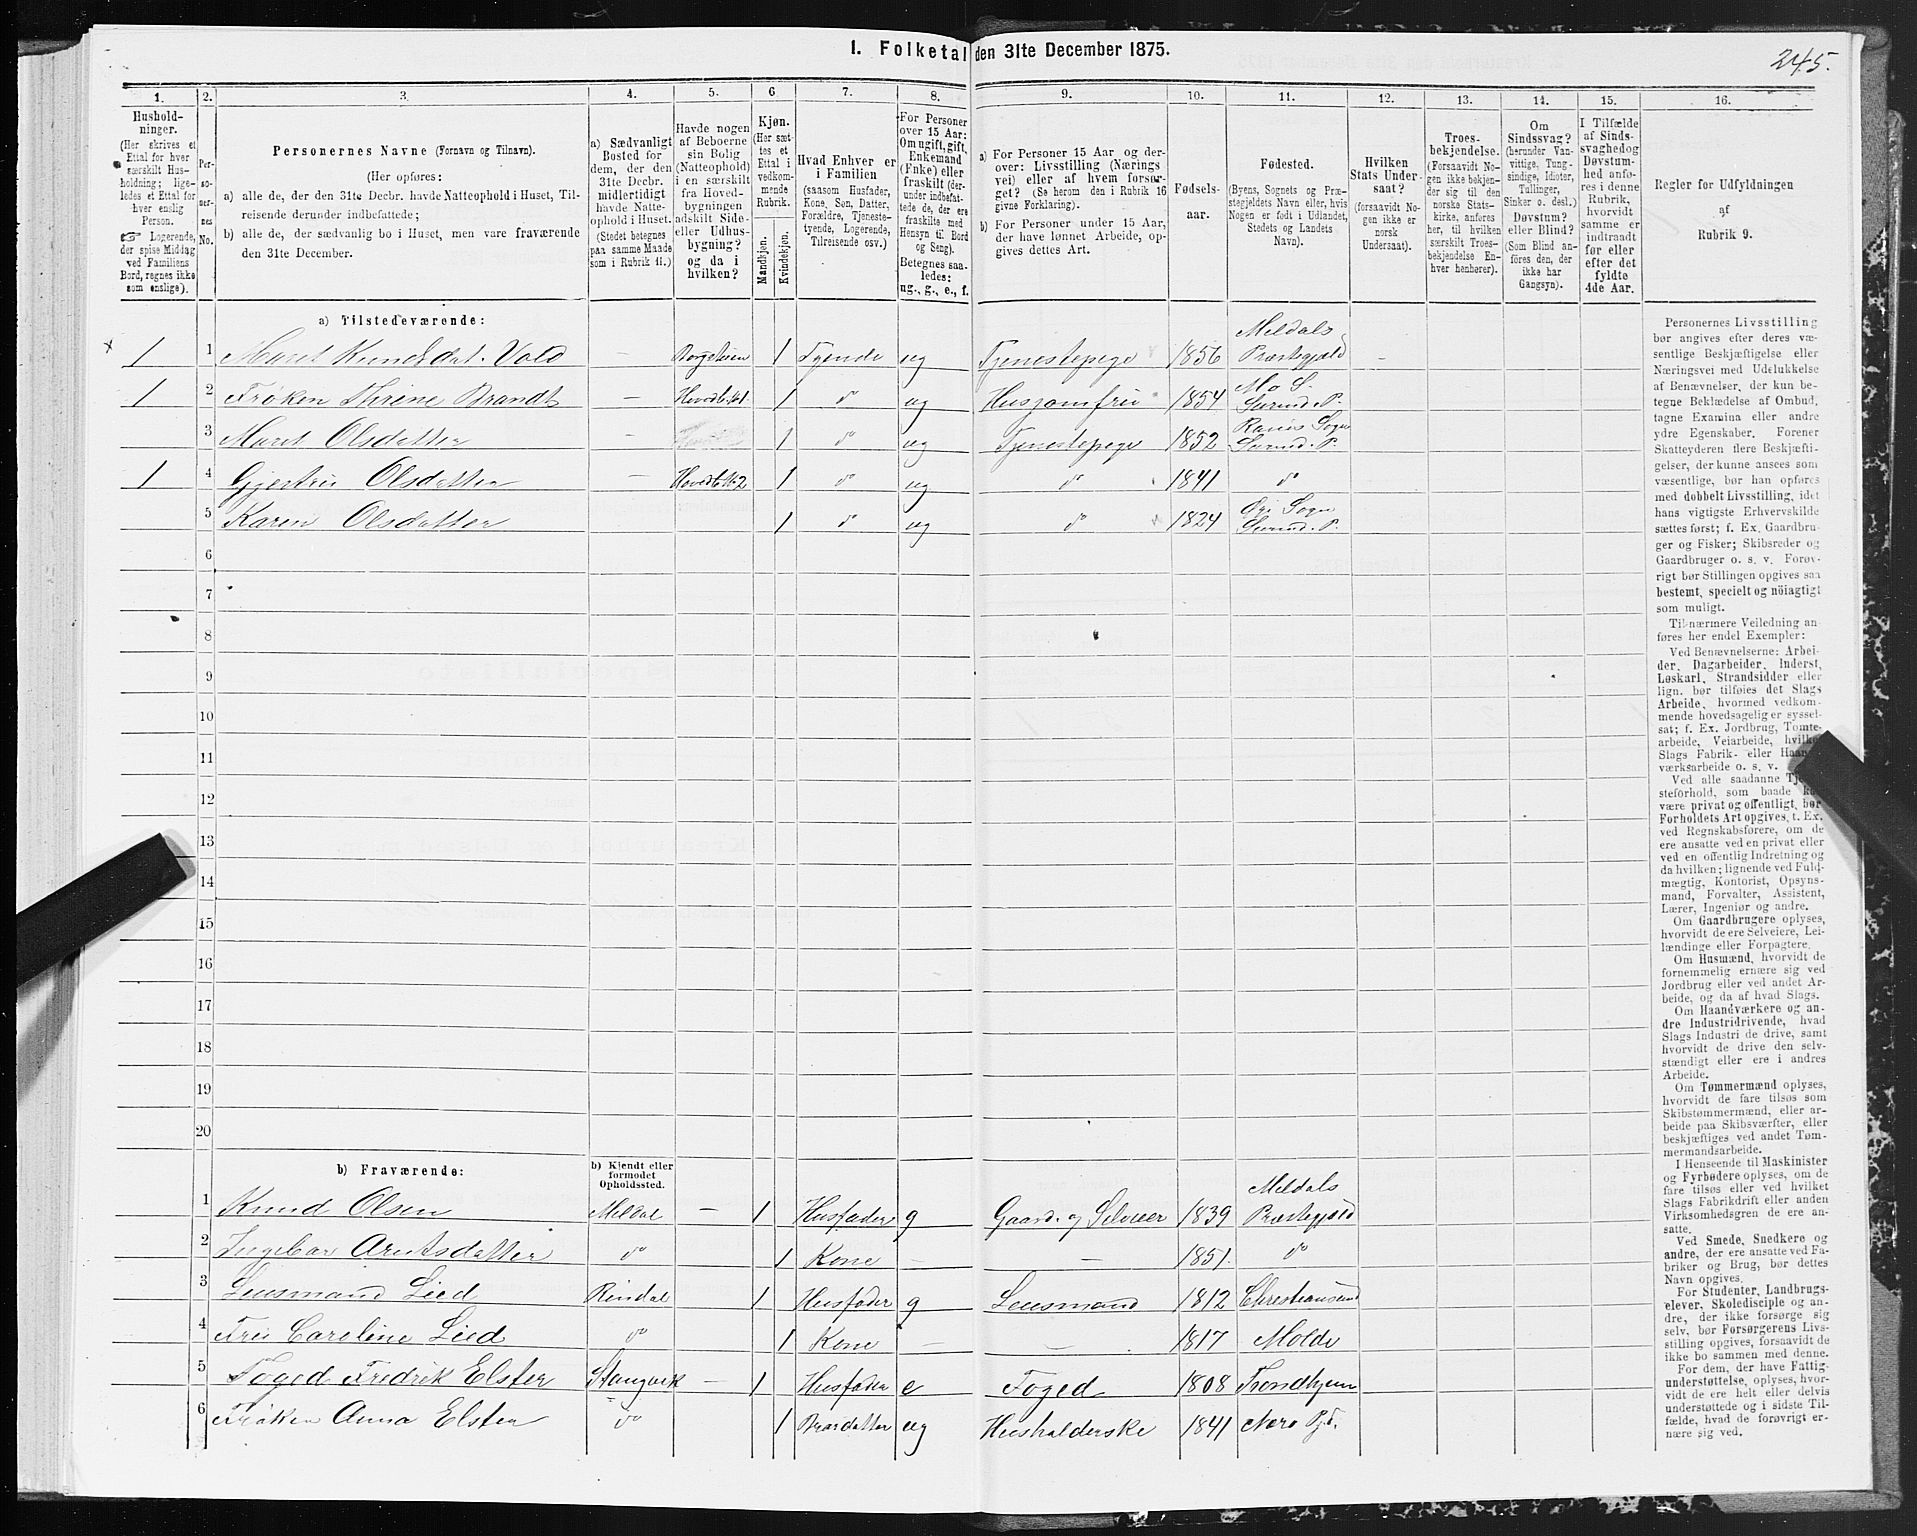 1. Folketal den 31te December 1875.
245.
1. 2. 3. 4. 5. 6 7. 8. 9. 10. 11. 12. 13. 14. 15. 16.
Hushold-
ninger.
(Her skrives et
Ettal for hver
særskilt Hus-
holdning; lige-
ledes et Ettal for
hver enslig
Person.
☞ Logerende,
der spise Middag
ved Familiens
Bord, regnes ikke
som enslige).
Per-
so-
ner-
nes
No.
Personernes Navne (Fornavn og Tilnavn).
(Her opføres:
a) alle de, der den 31te Decbr. havde Natteophold i Huset, Til-
reisende derunder indbefattede;
b) alle de, der sædvanlig bo i Huset, men vare fraværende
den 31te December.
a) Sædvanligt
Bosted for
dem, der den
31te Decbr.
midlertidigt
havde Natte-
ophold i Huset.
(Stedet betegnes
paa samme Maade
som i Rubrik 11.)
Havde nogen
af Beboerne
sin Bolig
(Natteophold)
i en særskilt
fra Hoved-
bygningen
adskilt Side-
eller Udhus-
bygning?
og da i
hvilken?
Kjøn.
(Her sæt-
tes et
Ettal i
vedkom-
mende
Rubrik.
Mandkjøn.
Kvindekjøn.
Hvad Enhver er
i Familien
(saasom Husfader,
Kone, Søn, Datter,
Forældre, Tjeneste-
tyende, Logerende,
Tilreisende osv.)
For Personer
over 15 Aar:
Om ugift, gift,
Enkemand
(Enke) eller
fraskilt (der-
under indbefat-
tede de, der ere
fraskilte med
Hensyn til Bord
og Seng).
Betegnes saa-
ledes:
ug., g., e., f.
a) For Personer 15 Aar og der-
over: Livsstilling (Nærings
vei) eller af hvem forsør-
get? (Se herom den i Rubrik 16
givne Forklaring).
b) For Personer under 15 Aar,
der have lønnet Arbeide, op-
gives dettes Art.
Fødsels-
aar.
Fødested.
(Byens, Sognets og Præ-
stegjeldets Navn eller, hvis
Nogen er født i Udlandet,
Stedets og Landets
Navn).
Hvilken
Stats Under-
saat?
(forsaavidt No-
gen ikke er
norsk
Undersaat).
Troes-
bekjendelse.
(Forsaavidt No-
gen ikke bekjen-
der sig til den
norske Stats-
kirke, anføres
her, til hvilken
særskilt Troes-
bekjendelse En-
hver henhører).
Om
Sindssvag?
(herunder Van-
vittige, Tung-
sindige, Idioter,
Tullinger,
Sinker o. desl.)
Døvstum?
eller Blind?
(Som Blind an-
føres den, der
ikke har
Gangsyn).
I Tilfælde
af Sinds-
svaghed og
Døvstum-
hed anfø-
res i denne
Rubrik,
hvorvidt
samme er
indtraadt
før eller
efter det
fyldte
4de Aar.
Regler for Udfyldningen
af
Rubrik 9.
a) Tilstedeværende:
1 1 Maret Knudsdat. Vold – Borgstuen 1 Tyende ug Tjenestepige 1856 Meldals Præstegjeld –
1 2 Frøken Thrine Brandt – Hovedb. No 1 1 do ug Husjomfru 1854 Mo S. Surend. P.
3 Maret Olsdatter – 1 do ug Tjenestepige 1852 Ranes Sogn Surend. P.
1 4 Gjertru Olsdatter – Hovedb No 2 1 do ug do 1841 do
5 Karen Olsdatter 1 do ug do 1824 Øie Sogn Surend. P.
6
7
8
9
10
11
12
13
14
15
16
17
18
19
20
b) Fraværende:
b) Kjendt eller
formodet
Opholdssted.
1 Knud Olsen Meldal – 1 Husfader g Gaard. og Selveier 1839 Meldals Præstegjeld
2 Ingebor Arntsdatter do 1 Kone – – 1851. do
3 Lensmand Lied Rindal 1 Husfader g Lensmand 1812 Christiansund
4 Fru Caroline Lied do 1 Kone – – 1817 Molde
5 Foged Fredrik Elster Stangvik – 1 Husfader e Foged 1808 Trondhjem
6 Frøken Anna Elster do 1 Brordatter ug Husholderske 1841 Nero Pgd.
Personernes Livsstilling
bør angives efter deres væ-
sentlige Beskjæftigelse eller
Næringsvei med Udelukkelse
af Benævnelser, der kun be-
tegne Beklædelse af Ombud,
tagne Examina eller andre
ydre Egenskaber. Forener
Skatteyderen flere Beskjæfti-
gelser, der kunne ansees som
væsentlige, bør han opføres
med dobbelt Livsstilling, idet
hans vigtigste Erhvervskilde
sættes først; f. Ex. Gaardbru-
ger og Fisker; Skibsreder og
Gaardbruger o. s. v. Forøv-
rigt bør Stillingen opgives saa
bestemt, specielt og nöiagtigt
som muligt.
Til nærmere Veiledning an-
føres her endel Exempler:
Ved Benævnelserne: Arbei-
der, Dagarbeider, Inderst,
Løskarl, Strandsidder eller
lign. bør tilføies det Slags
Arbeide, hvormed vedkom-
mende hovedsagelig er syssel-
sat; f. Ex. Jordbrug, Tomte-
arbeide, Veiarbeide, hvilket
Slags Fabrik- eller Haand-
værksarbeide o. s. v.
Ved alle saadanne Tjene-
steforhold, som baade kan
være privat og offentligt, bør
Forholdets Art opgives, t. Ex.
ved Regnskabsførere, om de
ere ansatte ved en privat eller
ved en offentlig Indretning og
da hvilken; lignende ved Fuld-
mægtig, Kontorist, Opsyns-
mand, Forvalter, Assistent,
Lærer, Ingeniør og andre.
Om Gaardbrugere oplyses,
hvorvidt de ere Selveiere, Lei-
lændinge eller Forpagtere.
Om Husmænd, hvorvidt de
fornemmelig ernære sig ved
Jordbrug eller ved andet Ar-
beide, og da af hvad Slags.
Om Haandværkere og an-
dre Industridrivende, hvad
Slags Industri de drive, samt
hvorvidt de drive den selv-
stændigt eller ere i andres
Arbeide.
Om Tømmermænd oplyses,
hvorvidt de fare tilsøs som
Skibstømmermænd, eller ar-
beide paa Skibsværfter, eller
beskjæftiges ved andet Tøm-
mermandsarbeide.
I Henseende til Maskinister
og Fyrbødere oplyses, om de
fare tilsøs eller ved hvilket
Slags Fabrikdrift eller anden
Virksomhedsgren de ere an-
satte.
Ved Smede, Snedkere og
andre, der ere ansatte ved Fa-
briker og Brug, bør dettes
Navn opgives.
For Studenter, Landbrugs-
elever, Skoledisciple og an-
dre, der ikke forsørge sig
selv, bør Forsørgerens Livs-
stilling opgives, forsaavidt de
ikke bo sammen med denne.
For dem, der have Fattig-
understøttelse, oplyses, hvor-
vidt de ere helt eller delvis
understøttede og i sidste Til-
fælde, hvad de forøvrigt er-
nære sig ved.